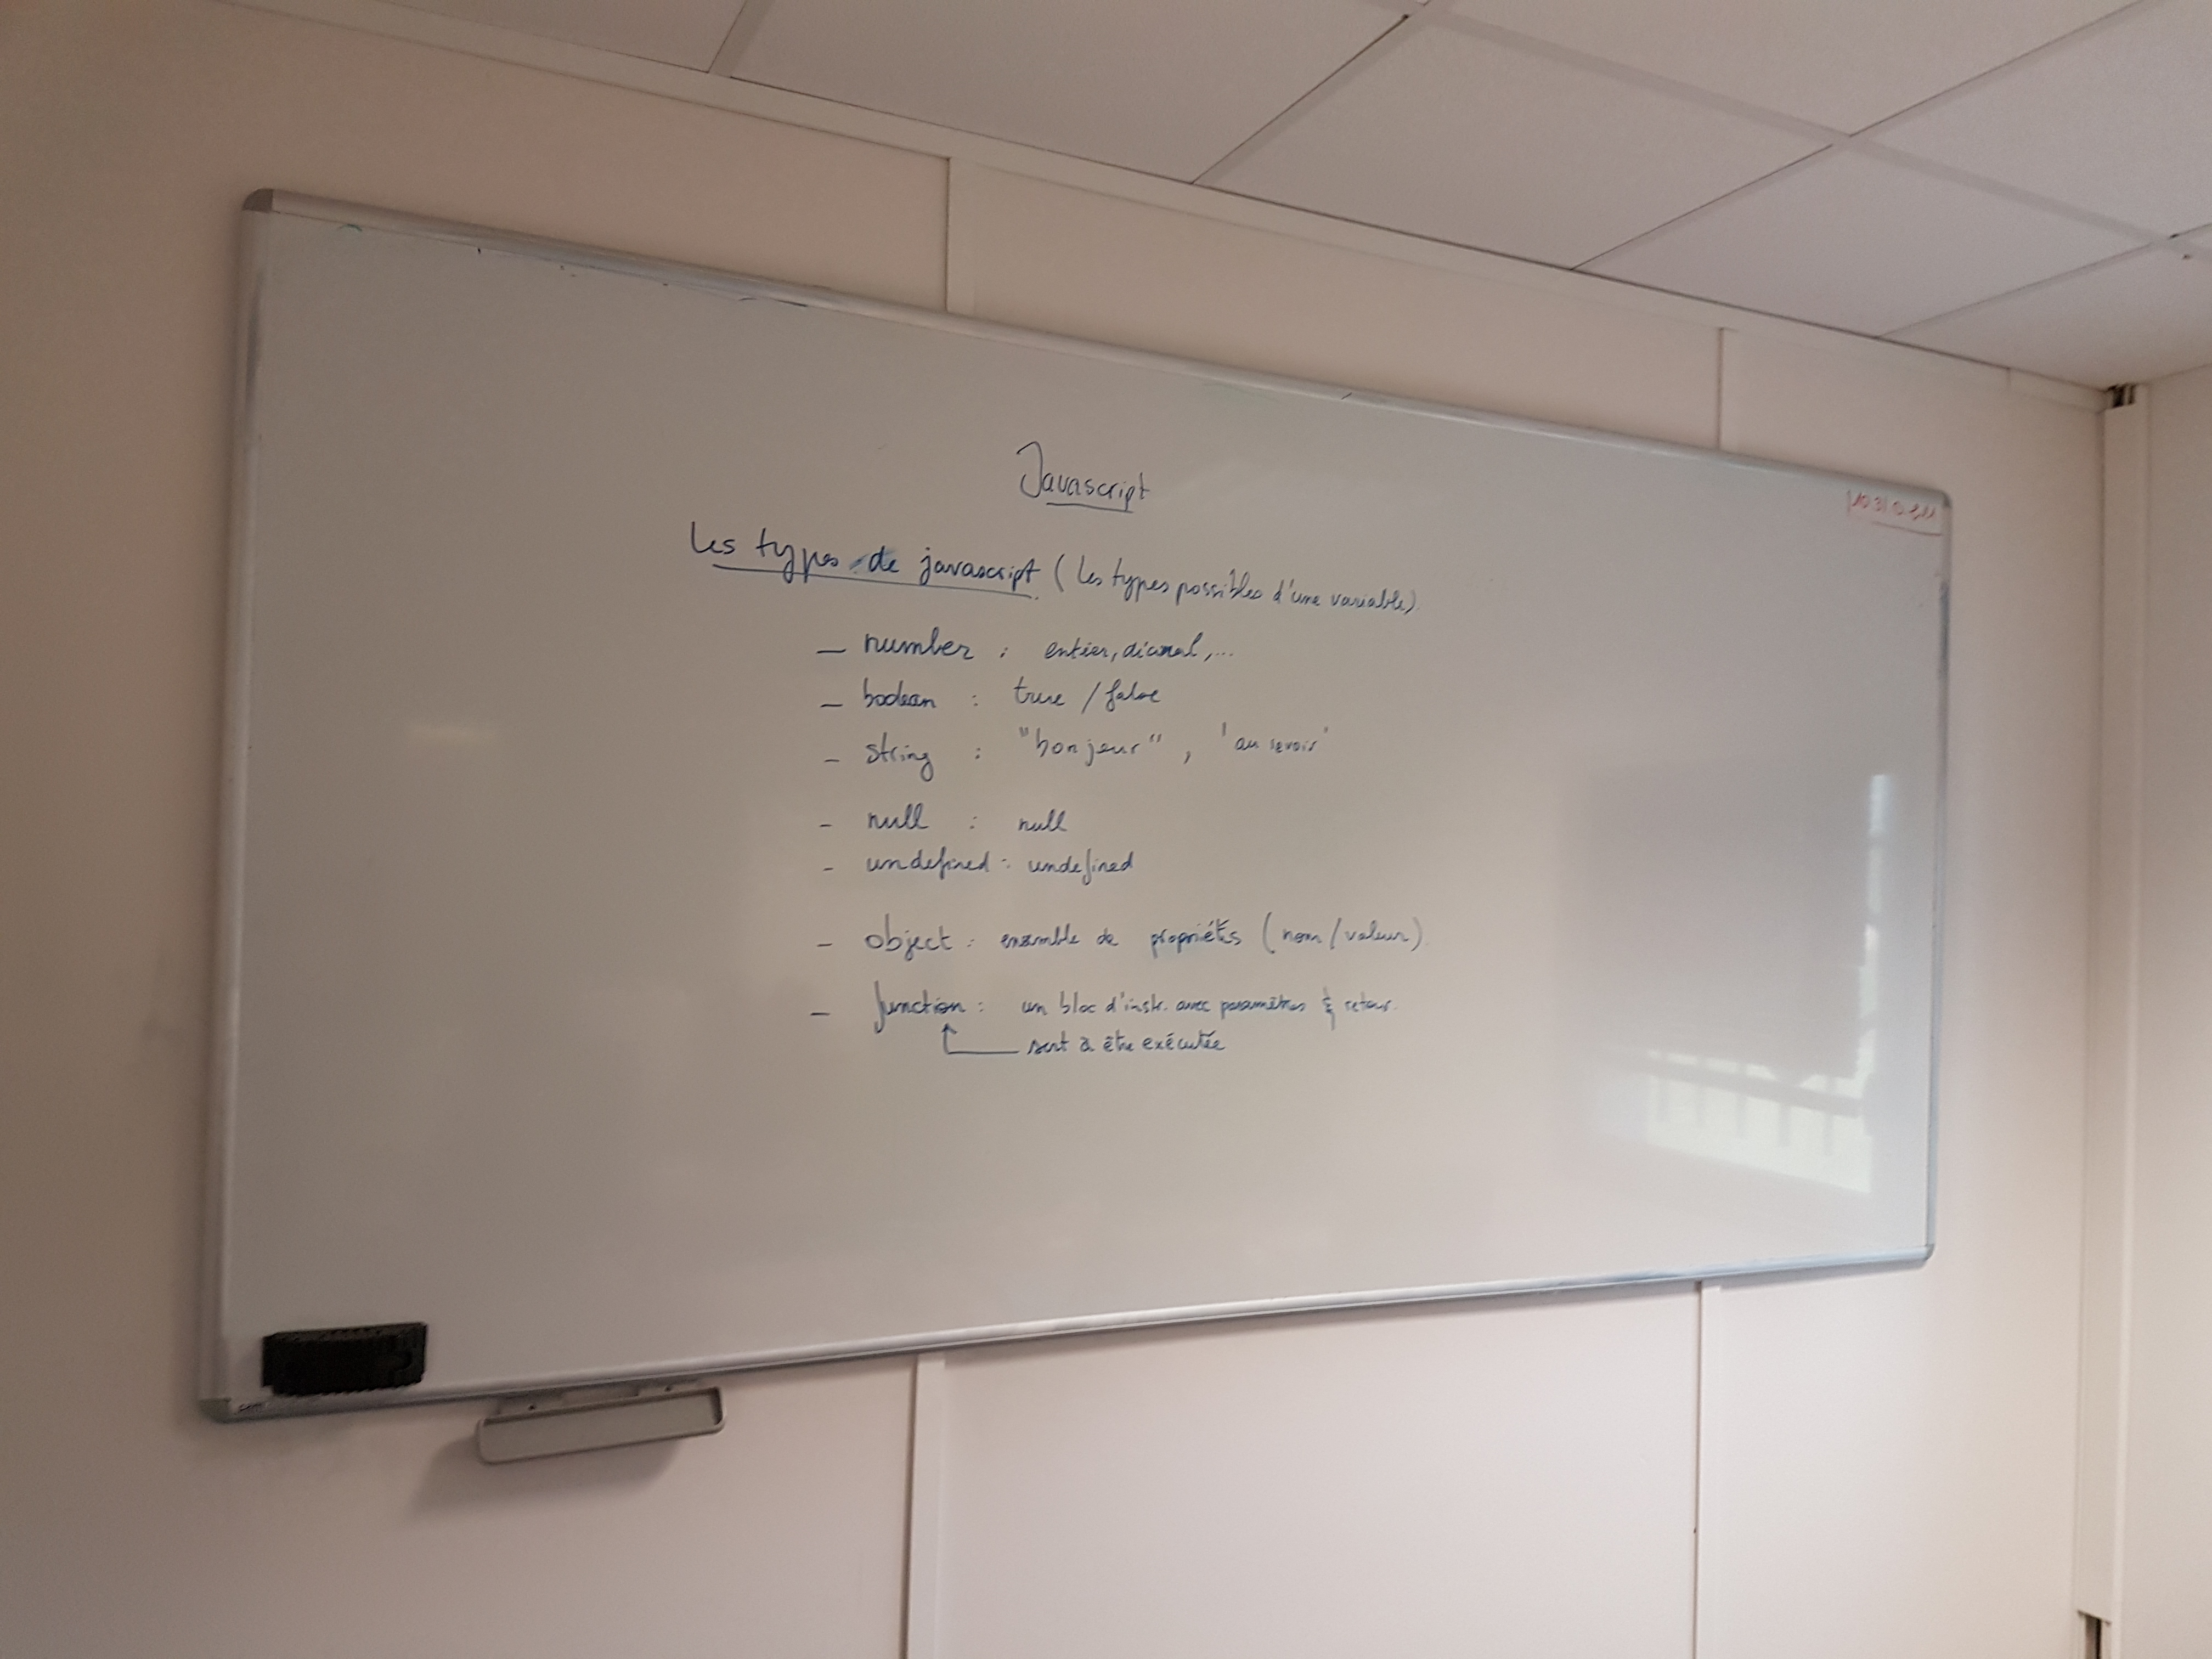 Javascript
Les types de javascript (les types possibles d'une variable)
- number : entier, décimal, ...
- boolean : true / false
- string : "bonjour", 'au revoir'
- null : null
- undefined : undefined
- object : ensemble de propriétés (nom/valeur)
- function : un bloc d'instr. avec paramètres & retour.
sert à être exécutée